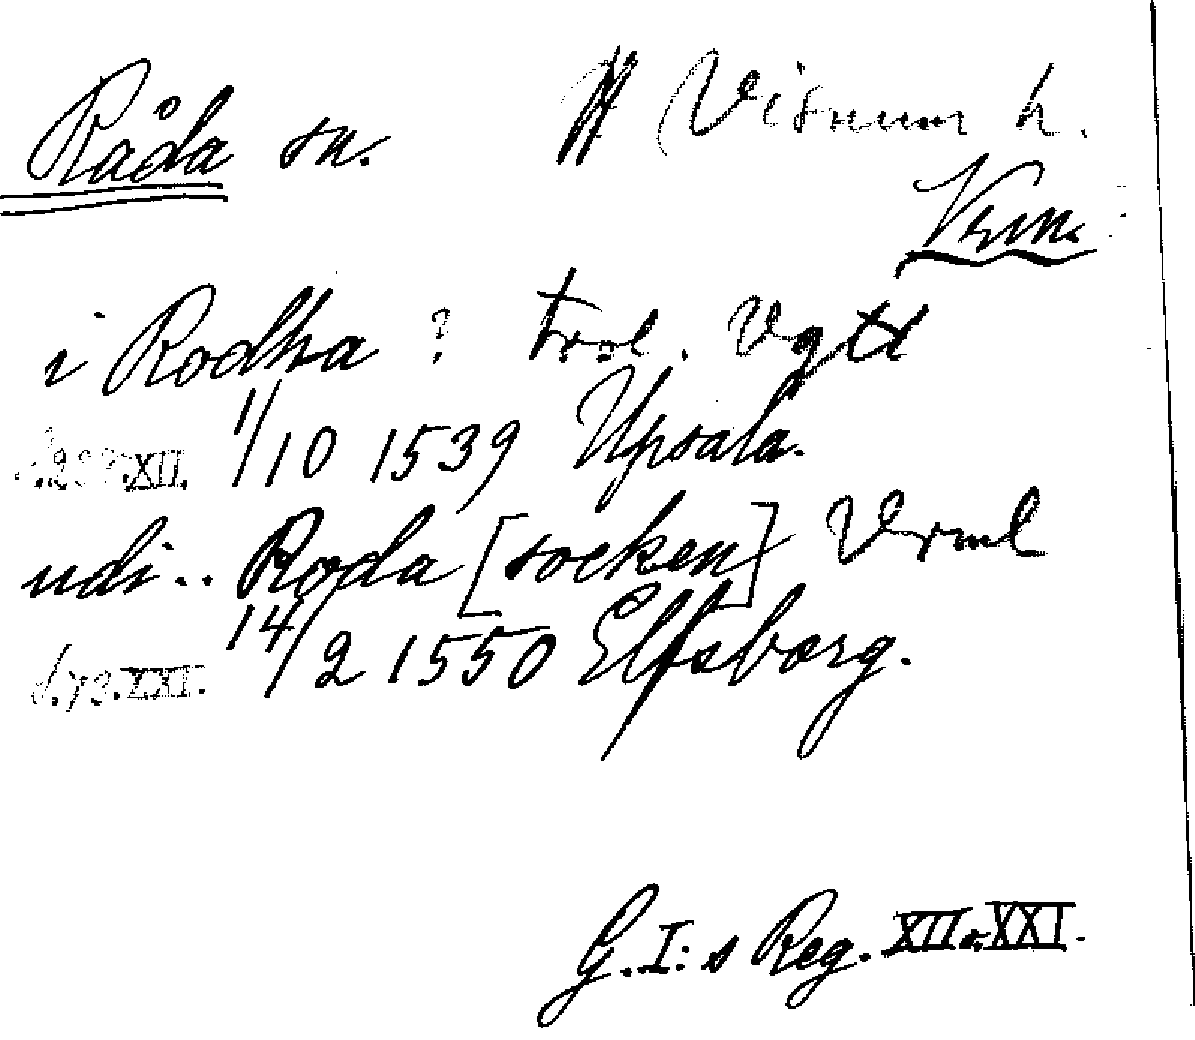 Råda sn. (Visnum h.
Vrm.
i Rodha ? trol. Vgtl
XII. 1/10 1539 Upsala.
udi.. Roda [socken] Vrml
s.73.XXI. 14/2 1550 Elfsborg.
G.I:s Reg. XII o. XXI.